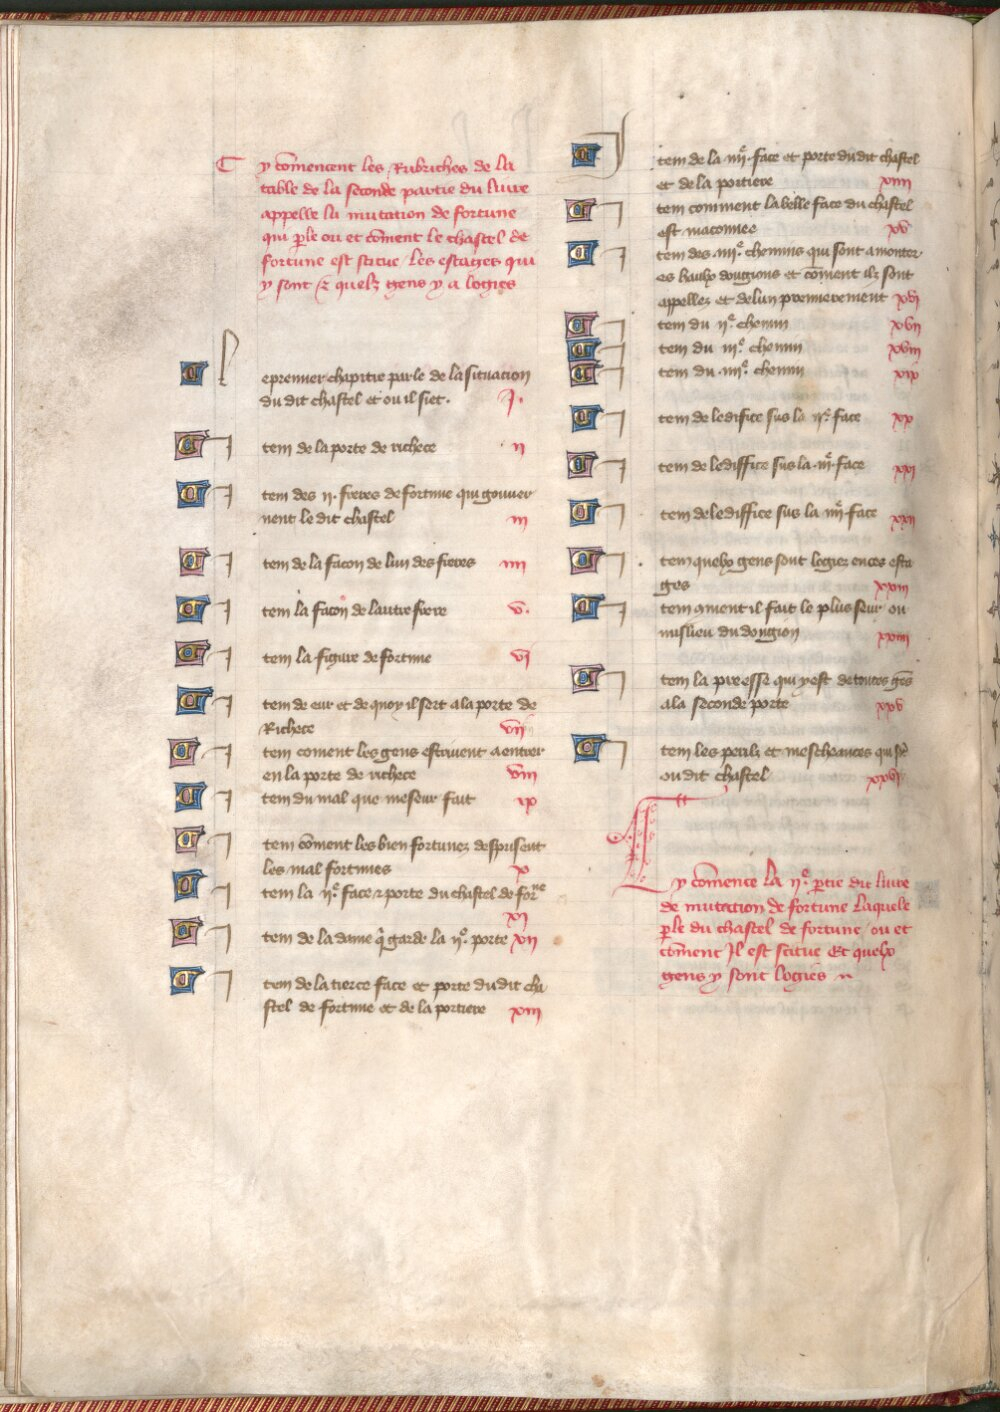 Cy cōmencent les Rubriches de la
table de la seconde partie du liure
appelle la mutacion de fortune
qui ꝑle ou et cōment le chastel de
fortune est scitue / les estages qui
y sont & quelz gens y a logies
Le premier chapitre parle de la situacion
du dit chastel et ou il siet . j.
Item de la porte de richece . ii
Item des .ii. freres de fortune qui gouuer
nent le dit chastel iii
Item de la facon de lun des freres iiii
Item la facon de lautre frere v.
Item la figure de fortune vi
Item de eur et de quoy il sert a la porte de
Richece vii
Item coment les gens estriuent a entrer
en la porte de richece viii
Item du mal que meseur fait ix
Item cōment les bien fortunez desprisent
les mal fortunes x
Item la iiͤ. face & porte du chastel de forⁿᵉ
xi
Item de la dame q̇ garde la iiͤ. porte xii
Item de la tierce face et porte du dit cha
stel de fortune et de la portiere xiii
Item de la iiiiͤ. face et porte du dit chastel
et de la portiere xiiii
Item comment la belle face du chastel
est maconnee xv
Item des .iiii.ͤ chemins qui sont a monter
es haulx dongions et cōment ilz sont
appellez et de lun premierement xvi
Item du iiͤ. chemin xvii
Item du iiiͤ. chemin xviii
Item du .iiiiͤ. chemin xix
Item de ledifice sus la iiͤ. face xx
Item de lediffice sus la .iiiͤ. face xxi
Item de lediffice sus la iiiiͤ. face xxii
Item quelx gens sont logiez en ces esta
ges xxiii
Item ꝯment il fait le plus seur ou
mislieu du dongion xxiiii
Item la presse qui y est de toutes gēs
a la seconde porte xxv
Item les perilz et mescheances qui sōt
ou dit chastel xxvi
Cy cōmence la iiͤ. ꝑtie du liure
de mutacion de fortune laquele
ꝑle du chastel de fortune / ou et
cōment Il est scitue Et quelx
gens y sont logies